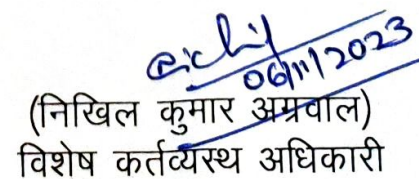 06/11/2023
(निखिल कुमार अग्रवाल)
विशेष कर्तव्यस्थ अधिकारी